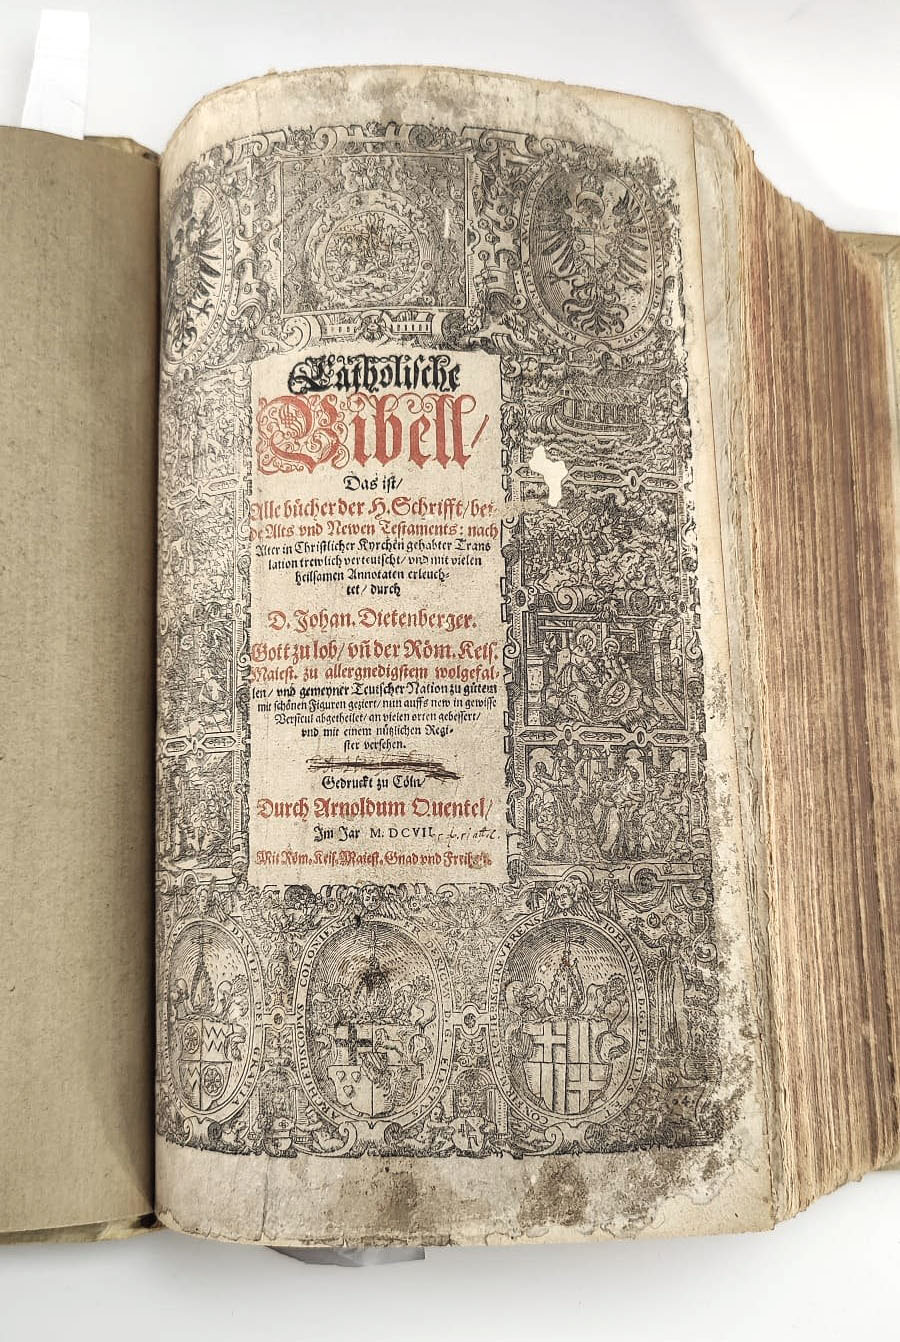 Catholische
Bibell/
Das ist/
Alle bücher der H. Schrifft/ bei-
de Alts vnd Newen Testaments: nach
Alter in Christlicher Kyrchen gehabter Trans
lation trewlich verteutscht/ vnd mit vielen
heilsamen Annotaten erleuch-
tet/ durch
D. Johan. Dietenberger.
Gott zu lob/ vñ der Röm. Keis.
Maiest. zu allergnedigstem wolgefal-
len/ vnd gemeyner Teutscher Nation zu gütem
mit schönen Figuren geziert/ nun auffs new in gewisse
Versicul abgetheilet/ an vielen orten gebessert/
vnd mit einem nützlichen Regi-
ster versehen.
Gedruckt zu Cöln/
Durch Arnoldum Quentel/
Im Jar M. DCVII
Mit Röm. Keis. Maiest. Gnad vnd
DANIEL
ARCHIEPISCOPVS COLONIENS
ELECTVS
IOHANNES D G ELECTVS